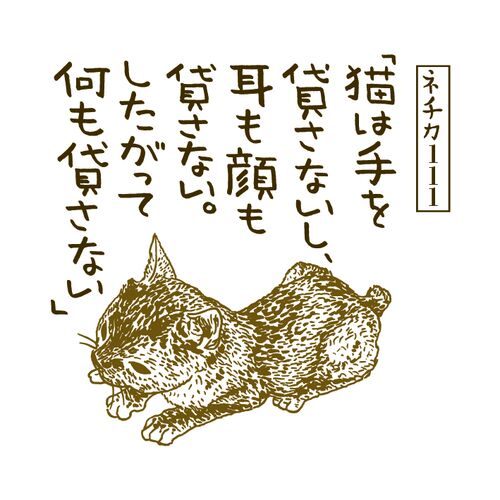 ネチカ111
「猫は手を
貸さないし、
耳も顔も
貸さない。
したがって
何も貸さない」